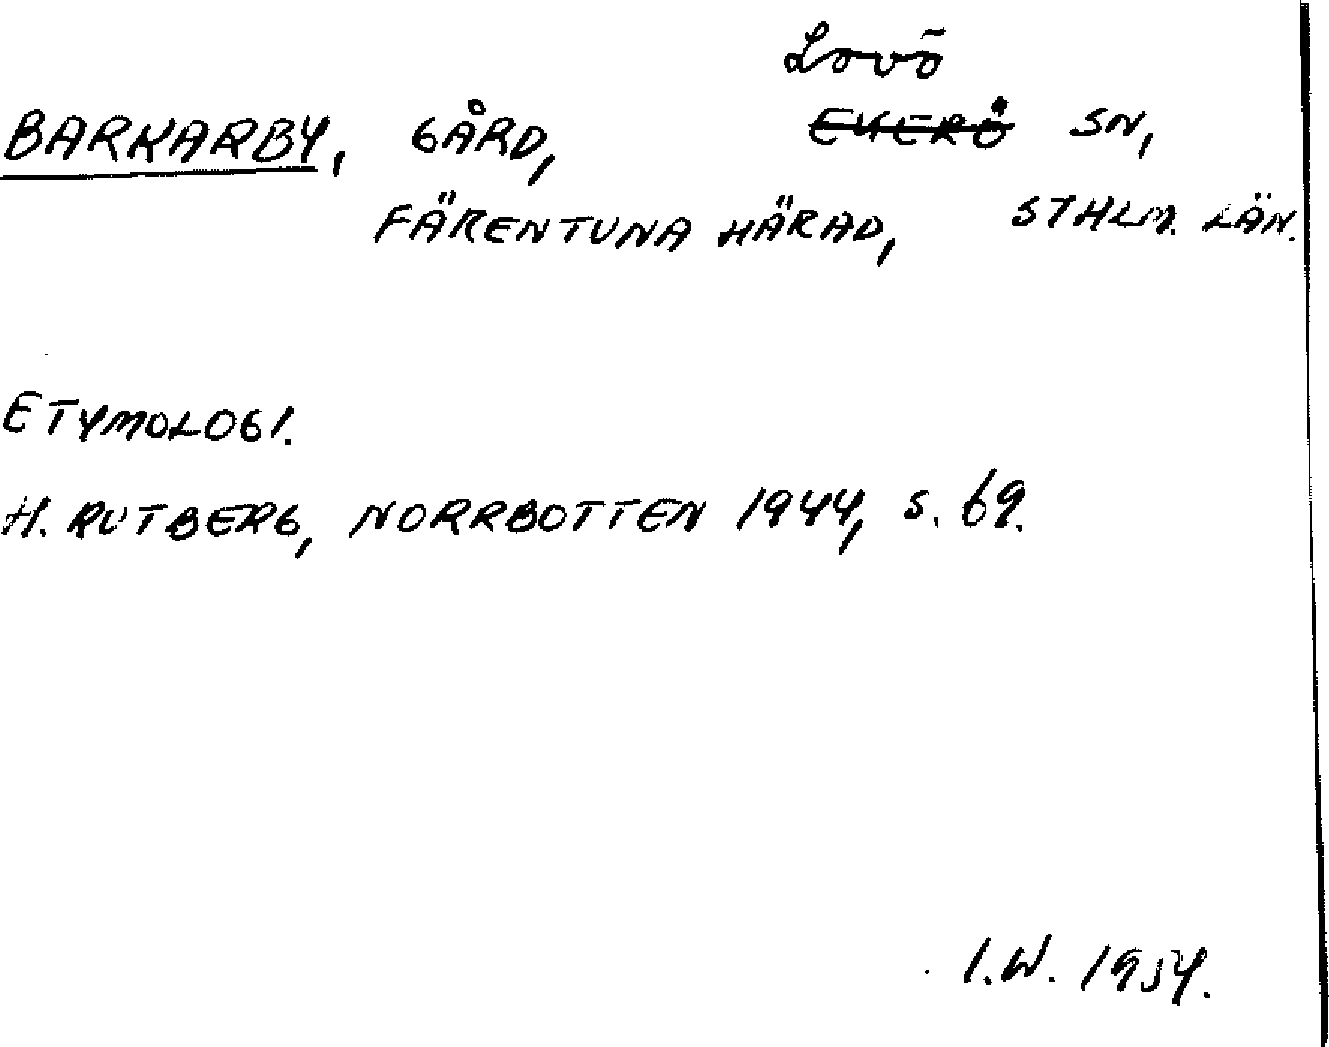 Lovö
BARKARBY, GÅRD, EKERÖ SN,
FÄRENTUNA HÄRAD, STHLM. LÄN.
ETYMOLOGI.
H. RUTBERG, NORRBOTTEN 1944, S. 69.
I.W. 1954.